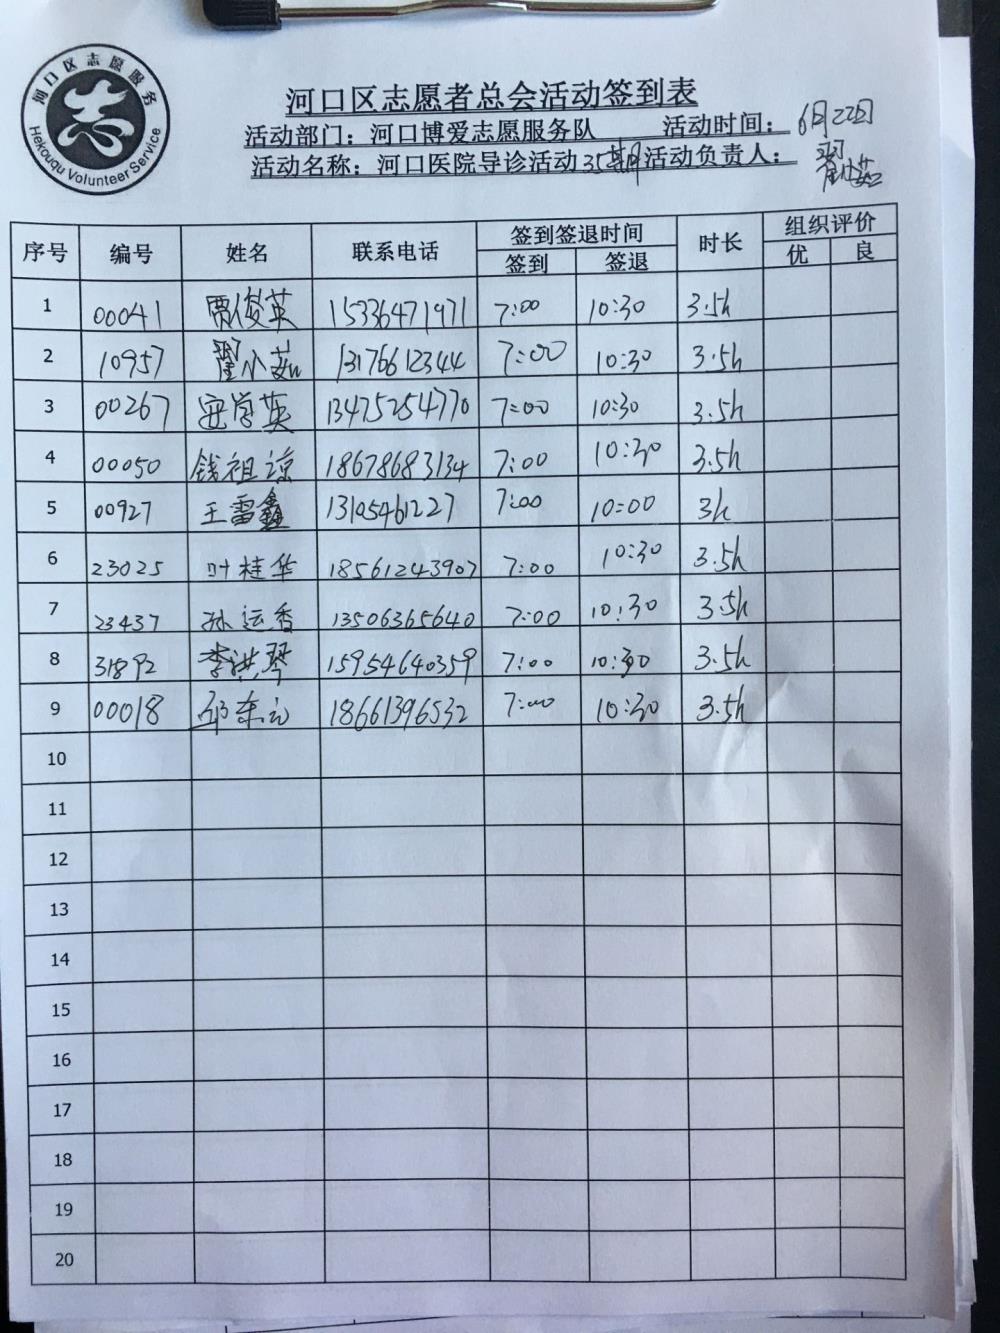 河口区志愿服务
Hekouqu Volunteer Service
河口区志愿者总会活动签到表
活动部门：河口博爱志愿服务队 活动时间：6月22日
活动名称：河口医院导诊活动35期 活动负责人：翟小茹
序号 编号 姓名 联系电话 签到签退时间 时长 组织评价
签到 签退 优 良
1 00041 贾俊英 15336471971 7:00 10:30 3.5h
2 10957 翟小茹 13176612344 7:00 10:30 3.5h
3 00267 英 13475254770 7:00 10:30 3.5h
4 00050 钱祖谅 18678683134 7:00 10:30 3.5h
5 00927 王雷鑫 13105461227 7:00 10:00 3h
6 23025 叶桂华 18561243907 7:00 10:30 3.5h
7 23437 孙运香 13506365640 7:00 10:30 3.5h
8 31892 李洪琴 15954640359 7:00 10:30 3.5h
9 00018 邱东 18661396532 7:00 10:30 3.5h
10
11
12
13
14
15
16
17
18
19
20